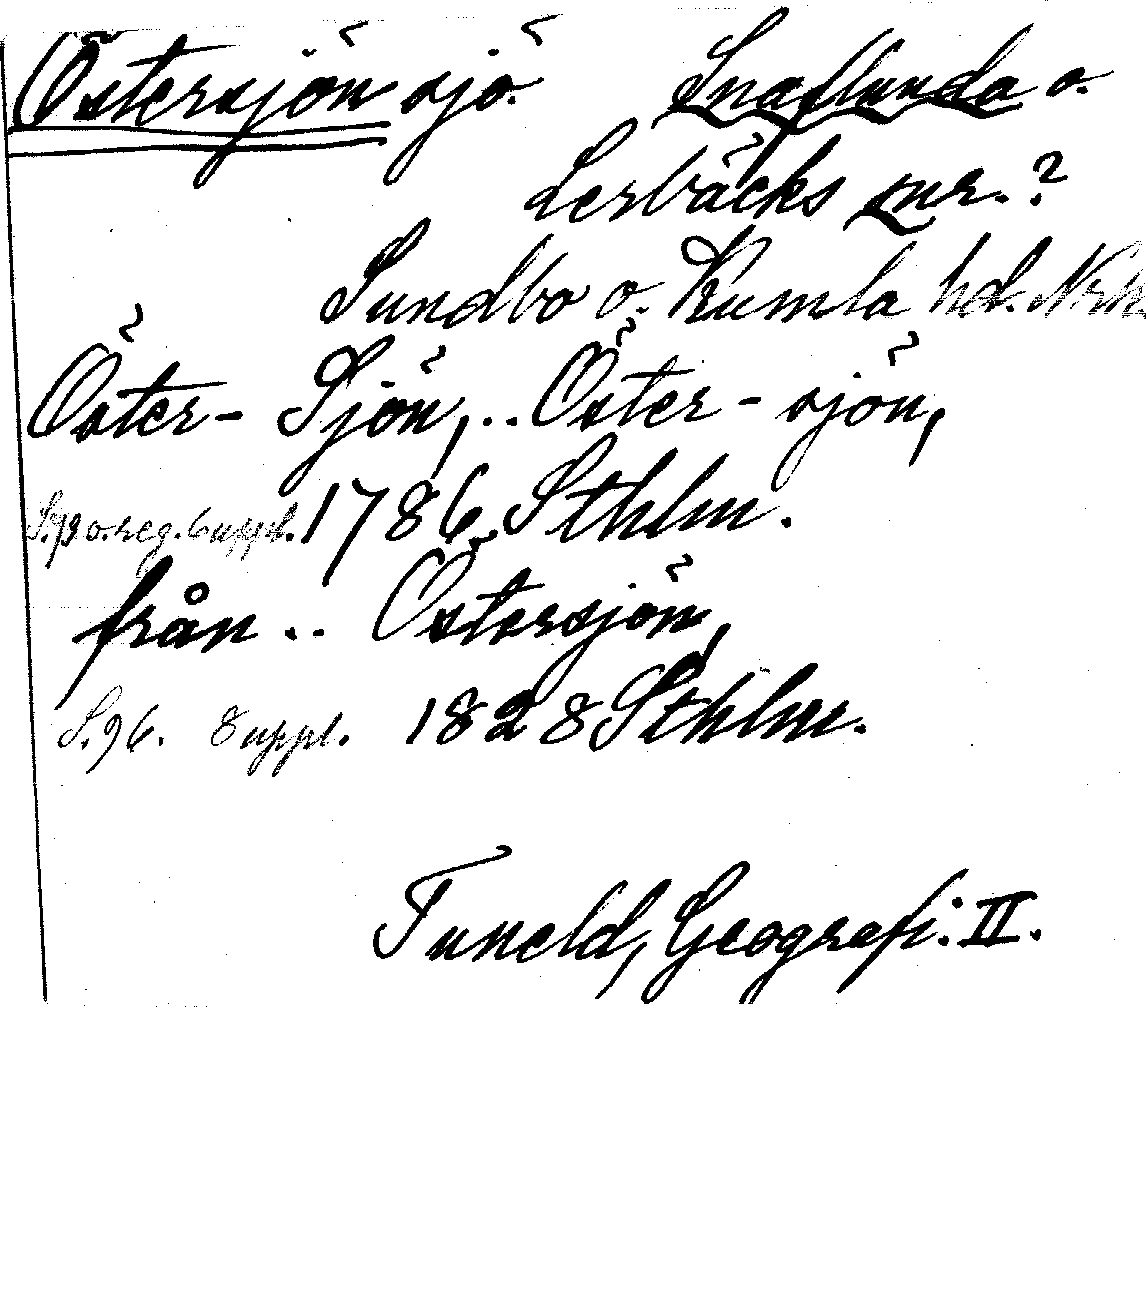 Östersjön sjö. Snaflunda o.
Lerbäcks snr.?
Sundbo o. Kumla hd. Nrk.
Öster- Sjön,.. Öster-sjön,
S.93 o. reg. 6 uppl. 1786 Sthlm.
från .. Östersjön,
S.96. 8 uppl. 1828 Sthlm.
Tuneld, Geografi. II.